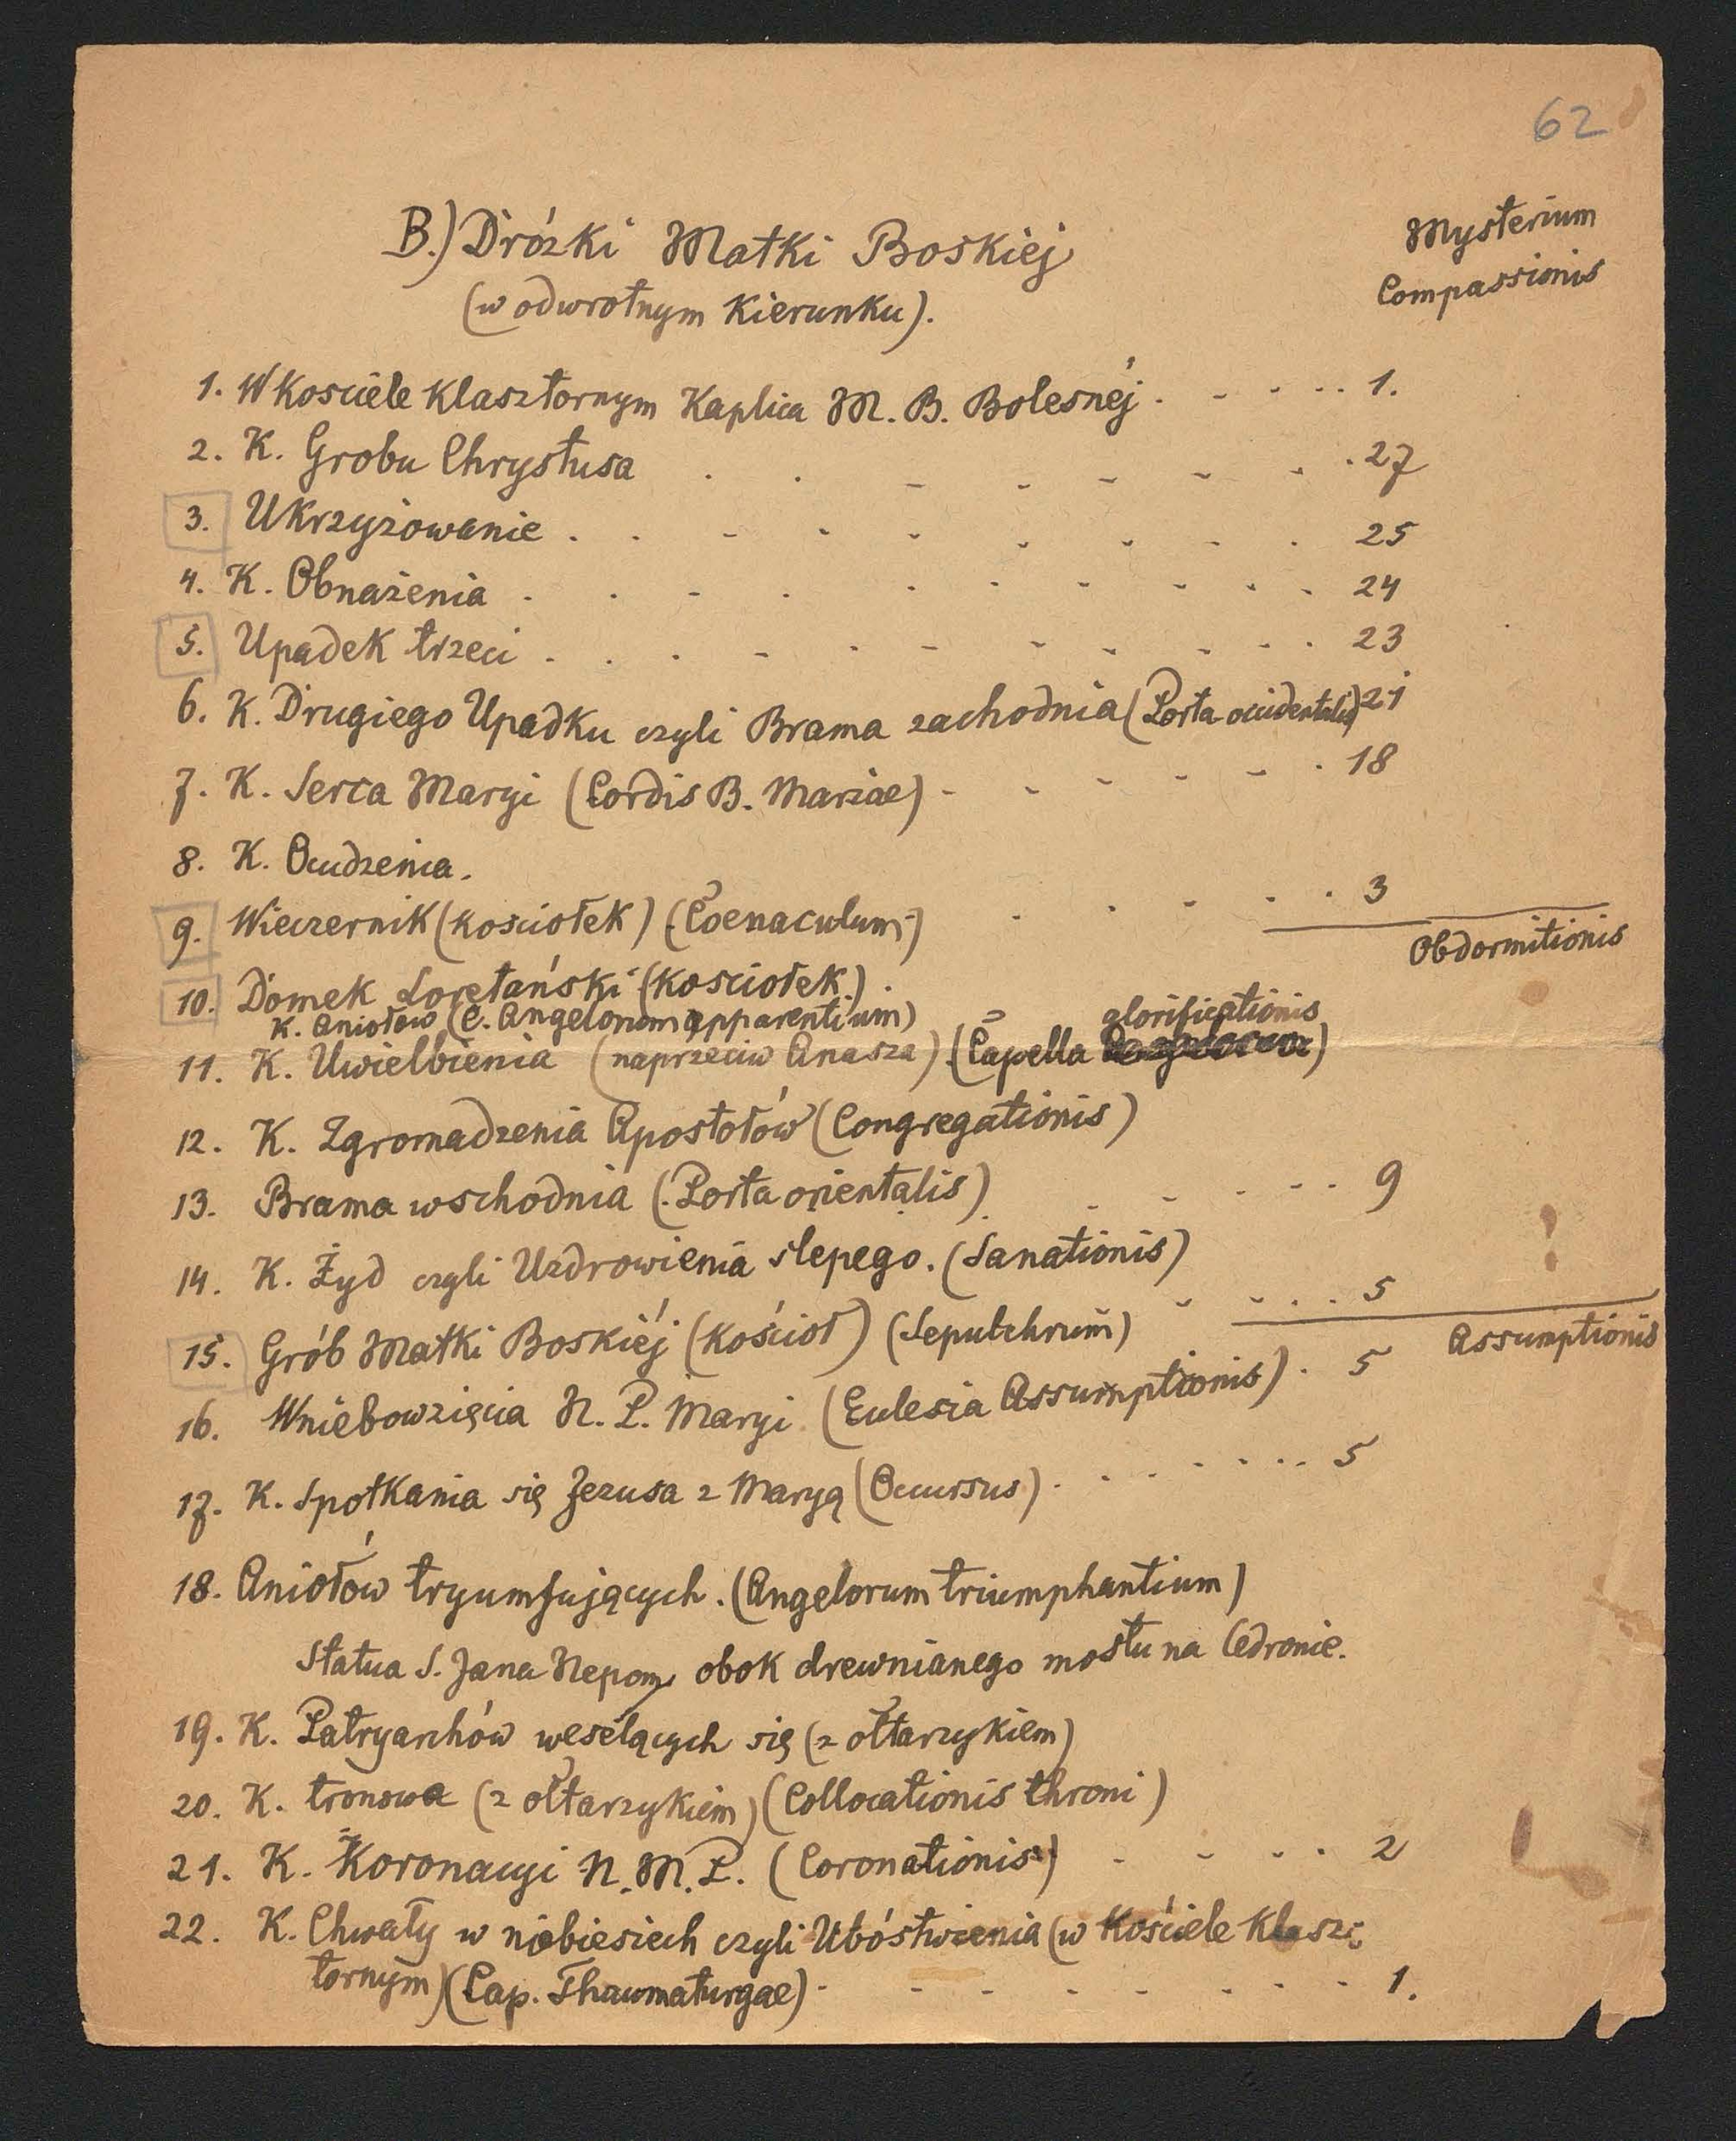 62
B.) Dróżki Matki Boskiej
(w odwrotnym kierunku).
Mysterium
Compassionis
1. W kosciele klasztornym Kaplica M. B. Bolesnéj . - - - .. 1.
2. K. Grobu Chrystusa . . - - - - - . 27
3. Ukrzyżowanie . . - - - - - - . 25
4. K. Obnażenia . . - . - - - - - . 24
5. Upadek trzeci . . . - - - - - - - . 23
6. K. Drugiego Upadku czyli Brama zachodnia (Porta occidentalis) 21
7. K. Serca Maryi (Cordis B. Mariae) - - - - - . 18
8. K. Ocudzenia.
9. Wieczernik (kosciołek) (Coenaculum) - - - - . 3
Obdormitionis
10. Domek Loretański (kosciołek) .
K. Aniołow (C. Angelorum apparentium)
glorificationis
11. K. Uwielbienia (naprzeciw Anasza) (Capella )
12. K. Zgromadzenia Apostołów (Congregationis)
13. Brama wschodnia (Porta orientalis) . - - - - - 9
14. K. Żyd czyli Uzdrowienia slepego. (Sanationis)
15. Grób Matki Boskiéj (kościoł) (Sepulchrum) - - . . . 5
Assumptionis
16. Wniebowzięcia N. P. Maryi (Eclesia Assumptionis) . 5
17. K. Spotkania się Jezusa z Maryą (Occursus) . - - - - - .. 5
18. Aniołów tryumfujących. (Angelorum triumphantium)
Statua S. Jana Nepom. obok drewnianego mostu na Cedronie.
19. K. Patryarchów weselących się (z ołtarzykiem)
20. K. tronowa (z ołtarzykiem) (Collocationis throni)
21. K. Koronacyi N. M. P. (Coronationis) - - - . 2
22. K. Chwały w niebiesiech czyli Ubóstwienia (w Kościele klasz-
tornym) (Cap. Thaumaturgae) - - - - - - - - 1.